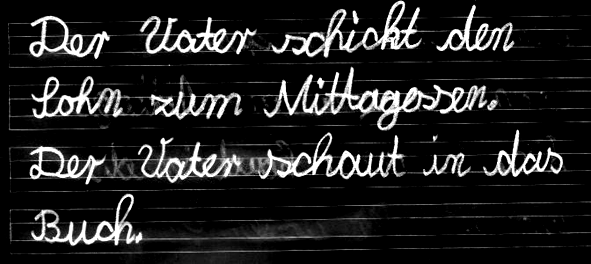 Der Vater schickt den
Sohn zum Mittagessen.
Der Vater schaut in das
Buch.